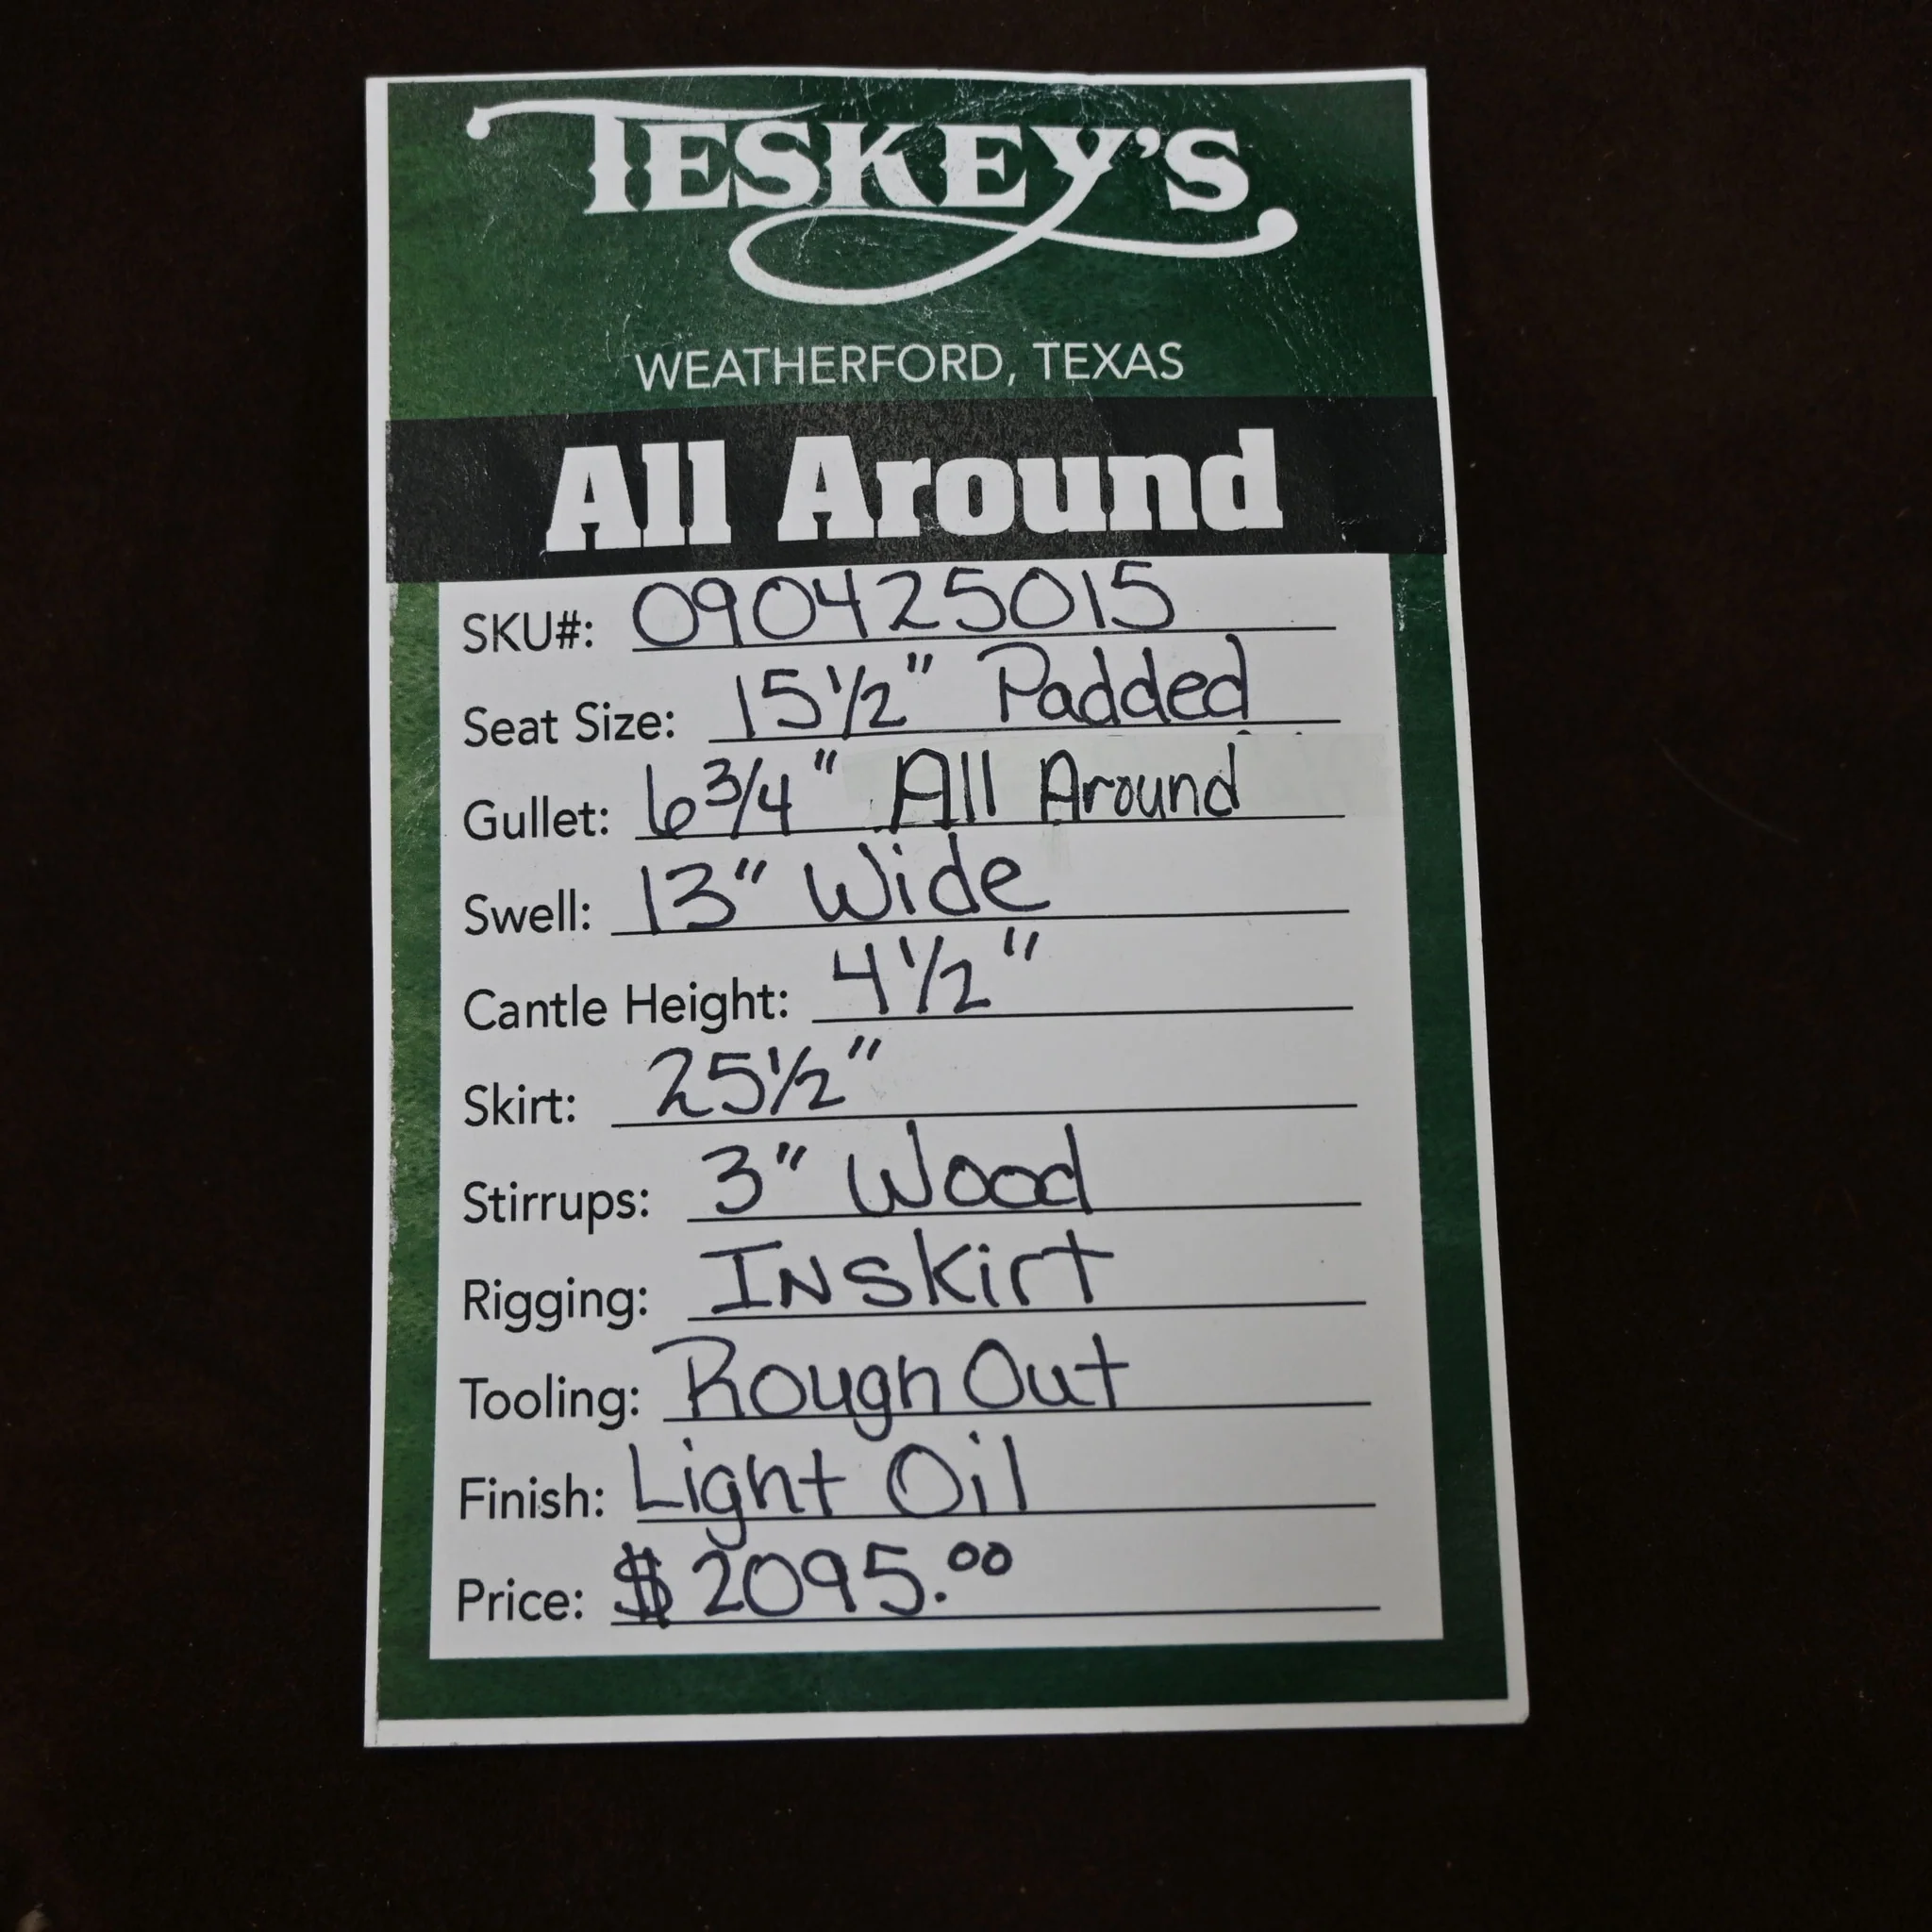 TESKEY'S
WEATHERFORD, TEXAS
All Around
SKU#: 090425015
Seat Size: 15½" Padded
Gullet: 6¾" All Around
Swell: 13" Wide
Cantle Height: 4½"
Skirt: 25½"
Stirrups: 3" Wood
Rigging: INSkirt
Tooling: Rough Out
Finish: Light Oil
Price: $2095.00